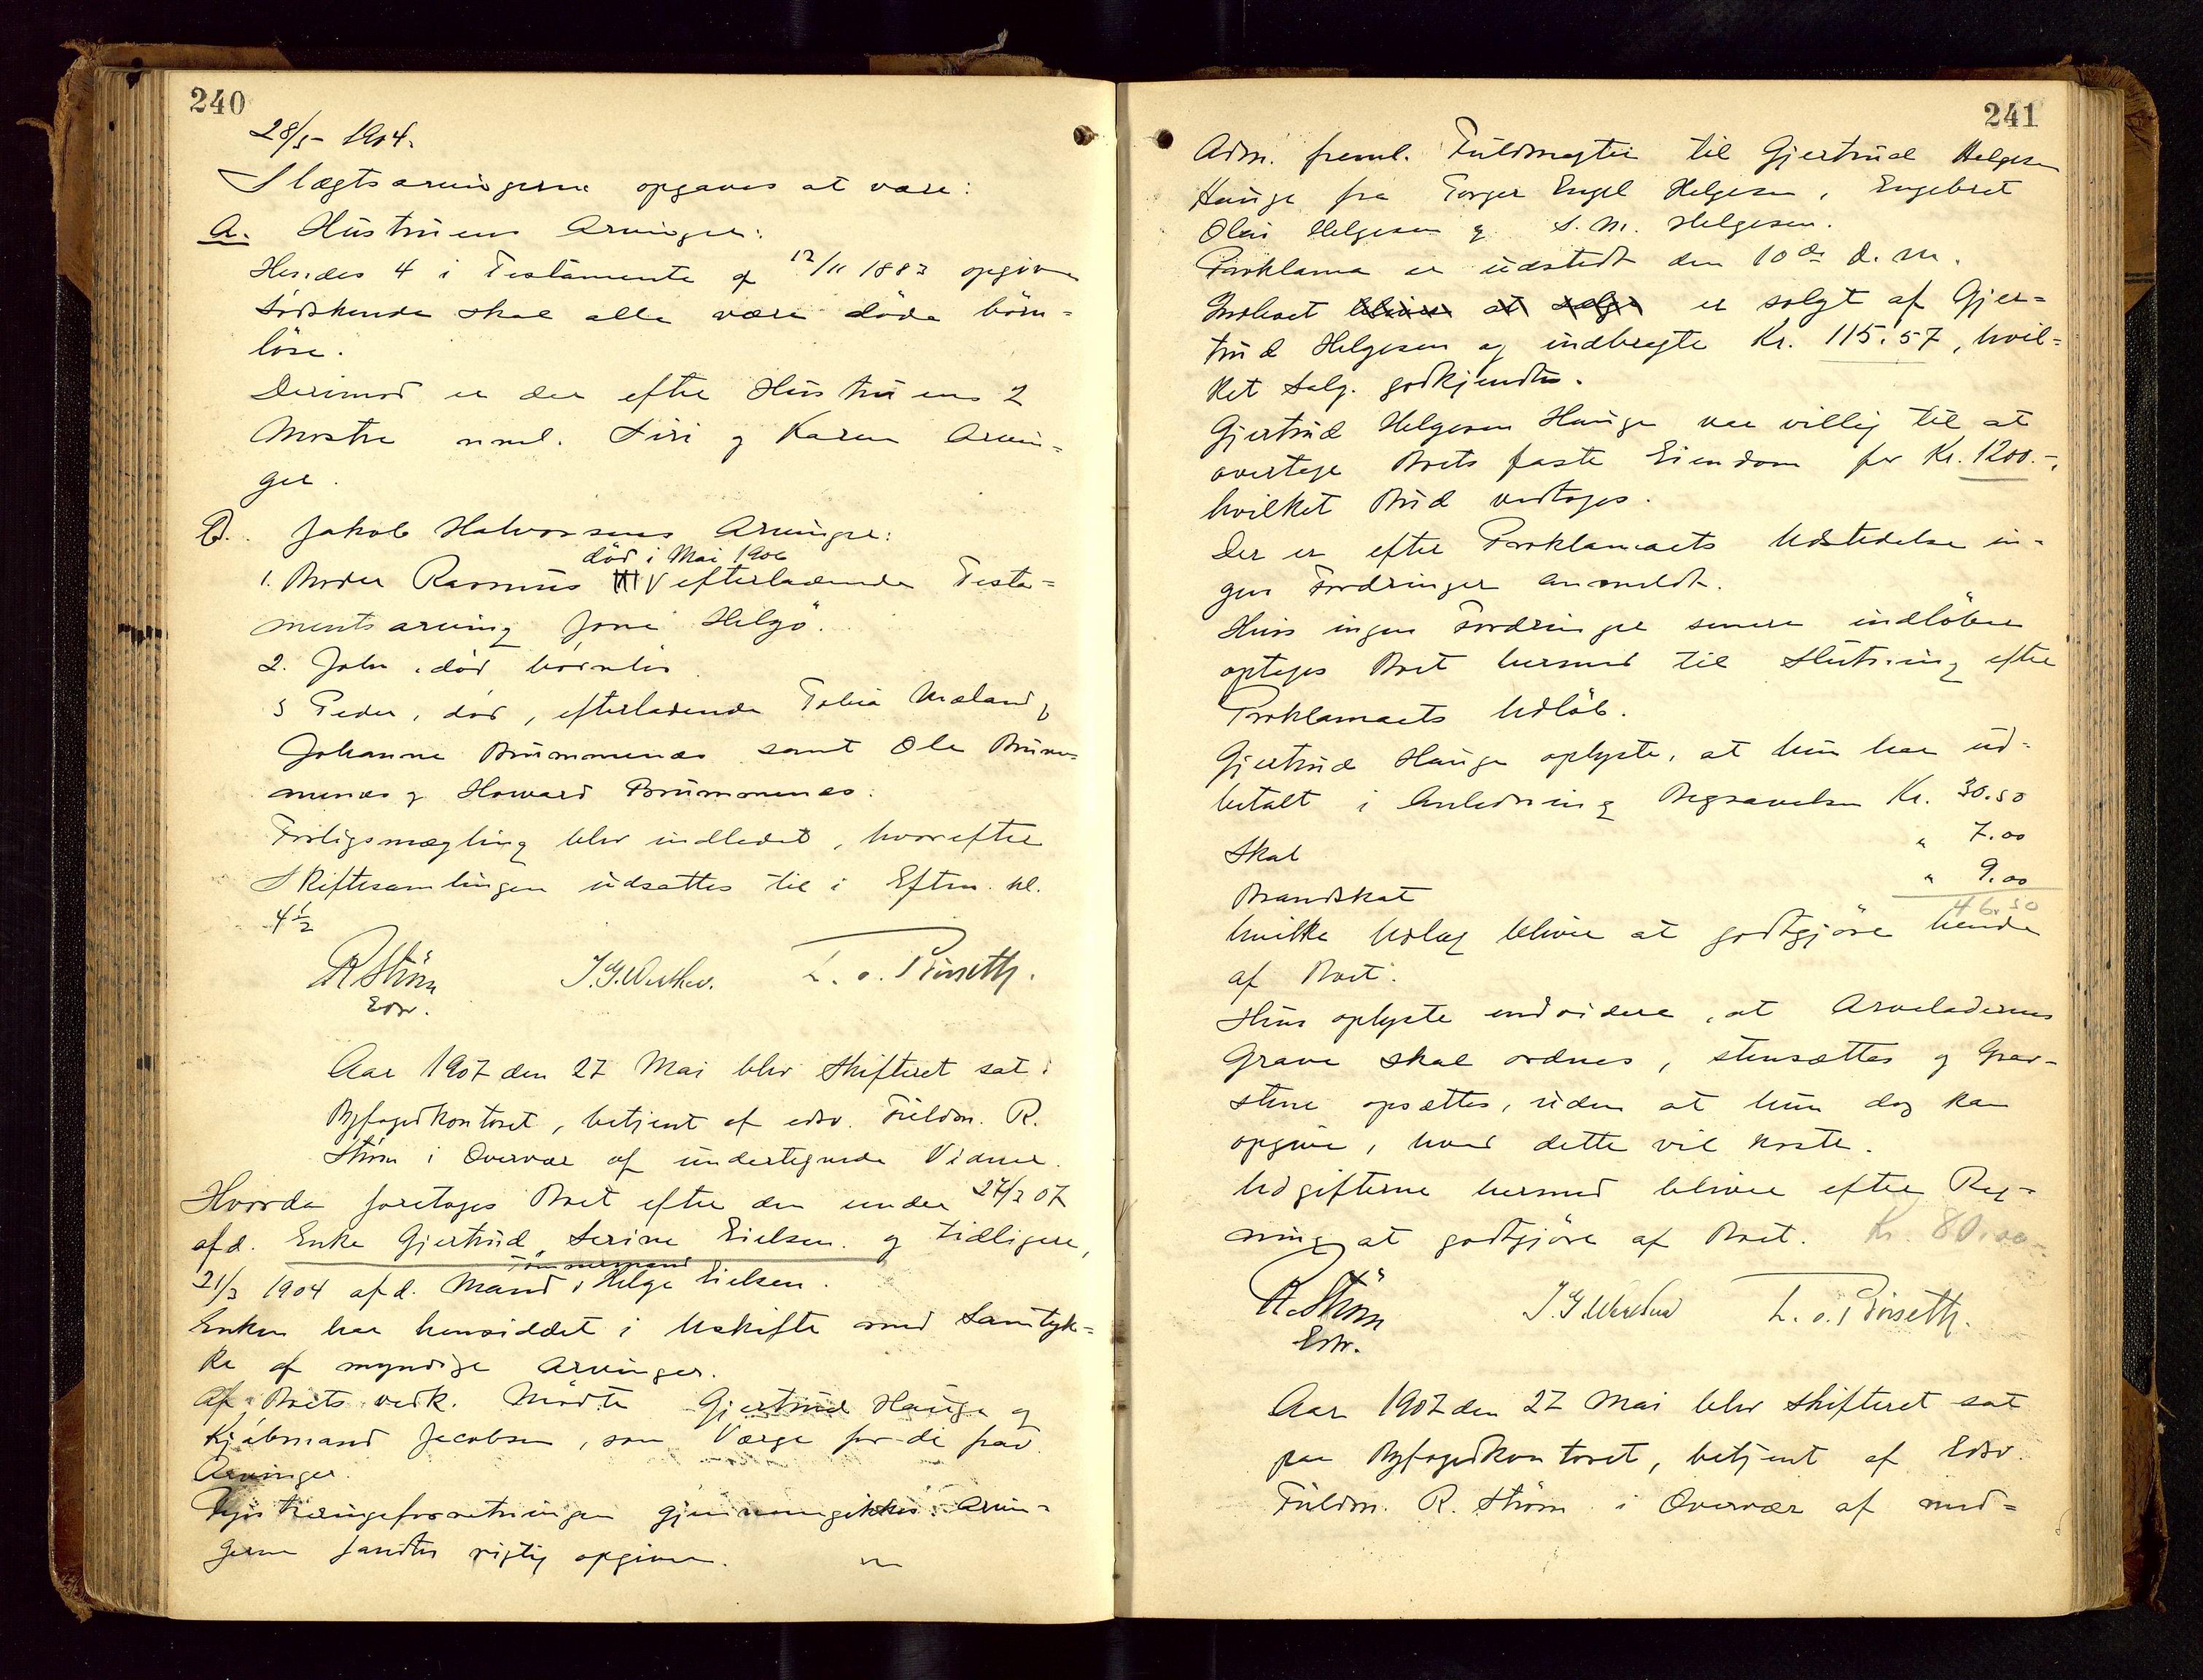 240
28/5 - 1904.
Slægtsarvingerne opgaves at være:
A. Hustruens Arvinger:
Hendes 4 i Testamente af 12/11 1887 opgivne
Södskende skal alle være döde börn=
löse.
Derimod er der efter Hustruens 2
Mostre nml. Siri og Karen Arvin=
ger.
B. Jakob Halvorsens Arvinger:
död i Mai 1906
1. Broder Rasmus efterladende Testa=
mentsarving Jone Helgö.
2. John, död barnlös
3 Peder, död, efterladende Tobia Meland,
Johanne Brummenes samt Ole Brum=
menes og Howard Brummenes.
Forligsmægling blev indledet, hvorefter
Skiftesamlingen udsattes til i Eftm. kl.
4½
R Ström
Edsv.
Aar 1907 den 27 Mai blev Skifteret sat i
Byfogedkontoret, betjent af edsv. Fuldm. R.
Ström i Overvær af undertegnede Vidner.
Hvorda foretoges Boet efter den under 27/3 07
afd. Enke Gjertrud Serine Eielsen og tidligere,
Tömmermand
21/3 1904 afd. Mand, Helge Eielsen.
Enken har hensiddet i Uskifte med Samtyk=
ke af myndige Arvinger.
Af Boets vedk. mödte Gjertrud Hauge og
Kjöbmand Jacobsen, som Værge for de frav.
Arvinger.
Registreringsforretningen gjennemgikkes. Arvin=
gerne fandtes rigtig opgivne.
241
Adm. freml. Fuldmagter til Gjertrud Helgesen
Hauge fra Torger Engel Helgesen, Engebret
Olai Helgesen og S. M. Helgesen.
Proklama er udstedt den 10de d. m.
Indboet bliver at sælge er solgt af Gjer=
trud Helgesen og indbragte Kr. 115.57, hvil=
ket Salg godkjendtes.
Gjertrud Helgesen Hauge var villig til at
overtage Boets faste Eiendom for Kr. 1200.-,
hvilket Bud vedtoges.
Der er efter Proklamaets Udstedelse in=
gen Fordringer anmeldt.
Hvis ingen Fordringer senere indlöber
optages Boet hermed til Slutning efter
Proklamaets Udlöb.
Gjertrud Hauge oplyste, at hun har ud=
betalt i Anledning Begravelsen Kr. 30.50
Skat " 7.00
Brandskat " 9.00
46.50
hvilke Udlæg bliver at godtgjöre hende
af Boet.
Hun oplyste endvidere, at Arveladernes
Grave skal ordnes, stensættes og Grav=
stene opsættes, uden at hun dog kan
opgive, hvad dette vil koste.
Udgifterne hermed bliver efter Reg=
ning at godtgjöre af Boet. Kr. 80.00
R. Ström
Edsv.
Aar 1907 den 27 Mai blev Skifteret sat
paa Byfogedkontoret, betjent af Edsv.
Fuldm. R. Ström i Overvær af med=